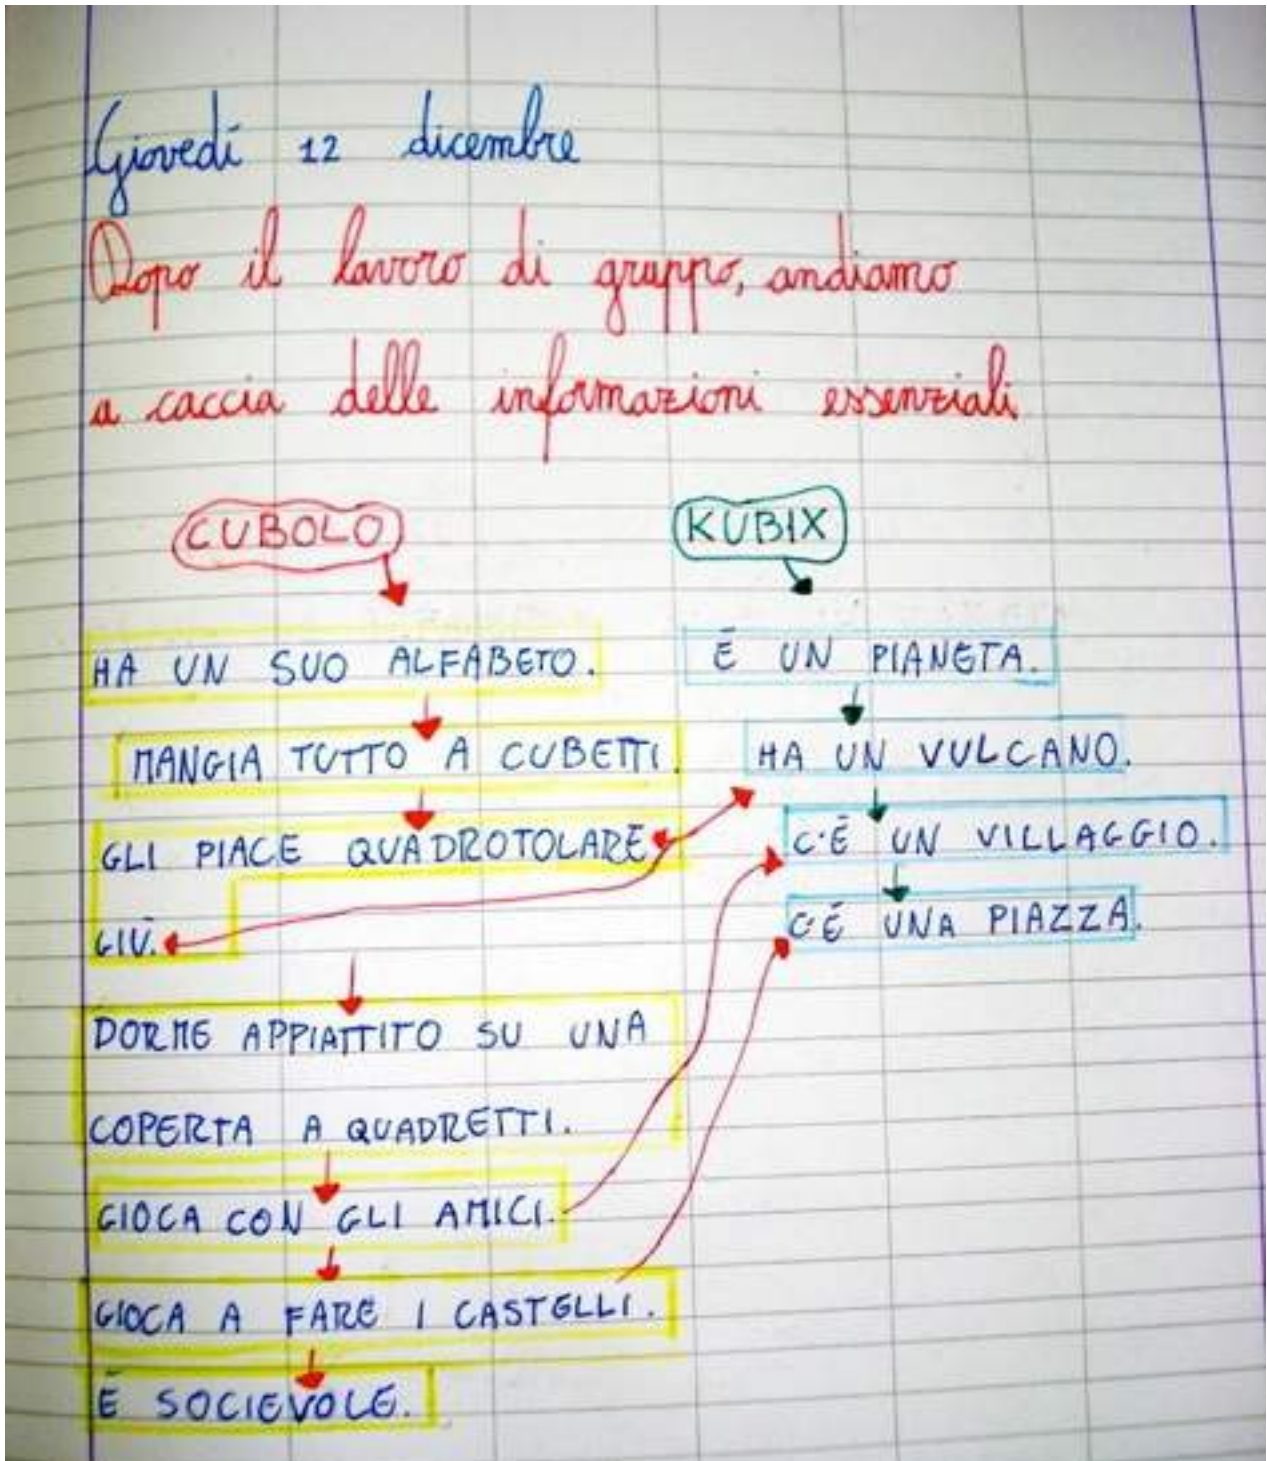 Giovedí 12 dicembre
Dopo il lavoro di gruppo, andiamo
a caccia delle informazioni essenziali
CUBOLO
HA UN SUO ALFABETO.
MANGIA TUTTO A CUBETTI.
GLI PIACE QUADROTOLARE
GIÙ.
DORME APPIATTITO SU UNA
COPERTA A QUADRETTI.
GIOCA CON GLI AMICI.
GIOCA A FARE I CASTELLI.
É SOCIEVOLE.
KUBIX
É UN PIANETA.
HA UN VULCANO.
C'É UN VILLAGGIO.
C'É UNA PIAZZA.